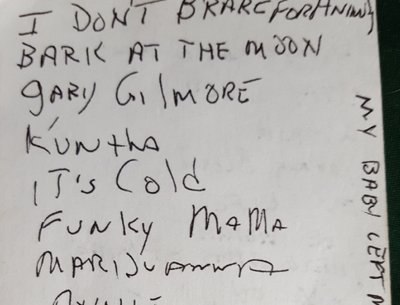 I DON'T BRAKE FOR ANIMALS
BARK AT THE MOON
GARY GILMORE
KUNTHA
IT'S Cold
FUNKY MAMA
MARIJUANNA
MY BABY LEFT